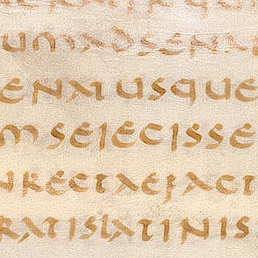 UMADSENA
ENATUSQUE
MSEIECISSE
NRECTAEFACT
RATISLATINIS